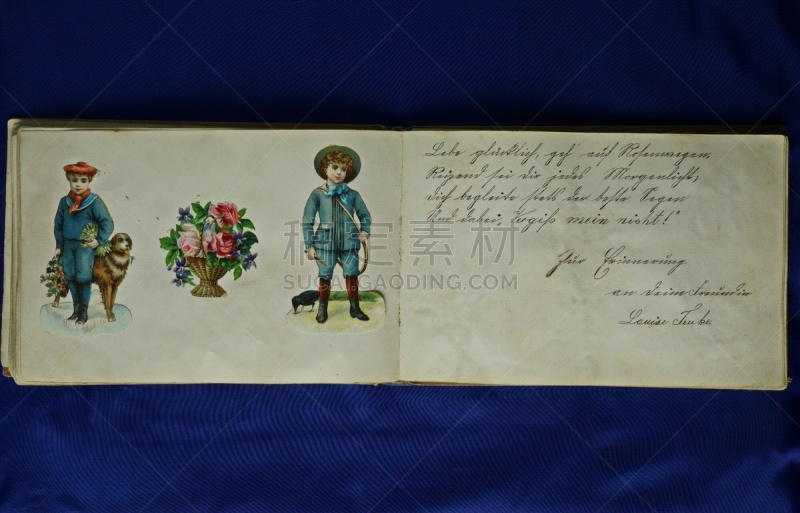 Lebe glücklich, geh' auf Rosenwegen,
Reizend sei dir jedes Morgenlicht,
Dich begleite stets der beste Segen
Und dabei, Vergiß mein nicht!
Zur Erinnerung
an deine Freundin
Louise
稳定素材
SUGARGAODING.COM